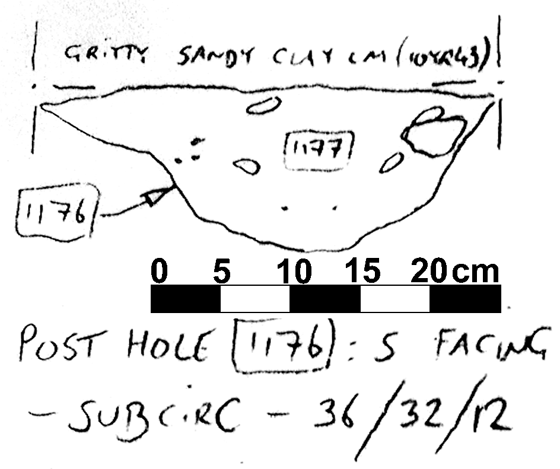 GRITTY SANDY CLAY LM (10YR43)
1177
1176
0 5 10 15 20 cm
POST HOLE [1176]: S FACING
- SUBCIRC - 36/32/12